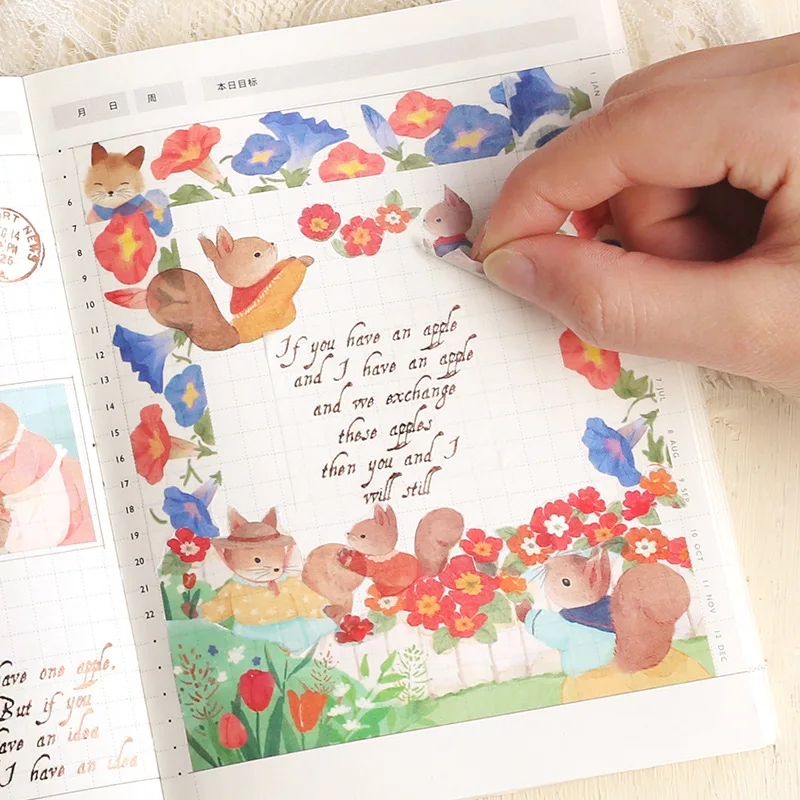 月 日 周
本日目标
1 JAN
6
7
8
9
10
11
12
13
14
15
16
17
18
19
20
21
22
7 JUL
8 AUG
9 SEP
10 OCT
11 NOV
12 DEC
If you have an apple
and I have an apple
and we exchange
these apples
then you and I
will still
NEWS
26
have one apple.
But if you
have an idea
I have an idea